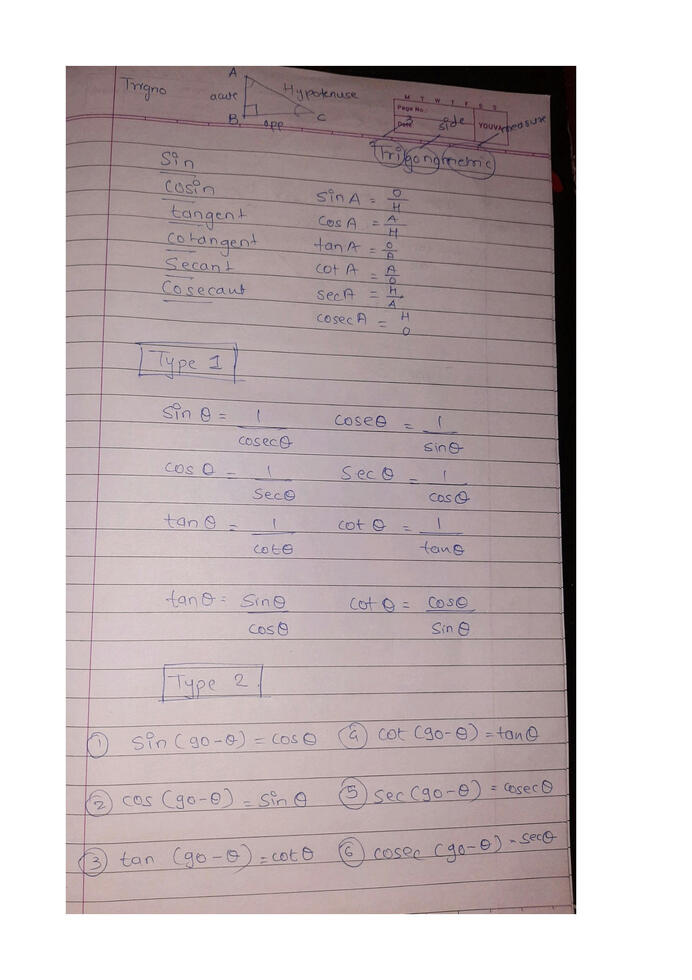 Trigno
A
acute
Hypotenuse
B
opp
C
M T W T F S S
Page No.:
Date: 3
side
YOUVA
measure
Trigonometric
Sin
Cosin
tangent
Cotangent
Secant
Cosecant
sin A = O/H
Cos A = A/H
tan A = O/A
cot A = A/O
sec A = H/A
cosec A = H/O
Type 1
sin θ = 1/cosecθ
coseθ = 1/sinθ
cos θ = 1/Secθ
Sec θ = 1/cosθ
tan θ = 1/cotθ
cot θ = 1/tanθ
tanθ = Sinθ/cosθ
cot θ = cosθ/Sin θ
Type 2
① sin (90-θ) = cosθ ④ cot (90-θ) = tanθ
② cos (90-θ) = sinθ ⑤ sec (90-θ) = cosecθ
③ tan (90-θ) = cotθ ⑥ cosec (90-θ) = secθ